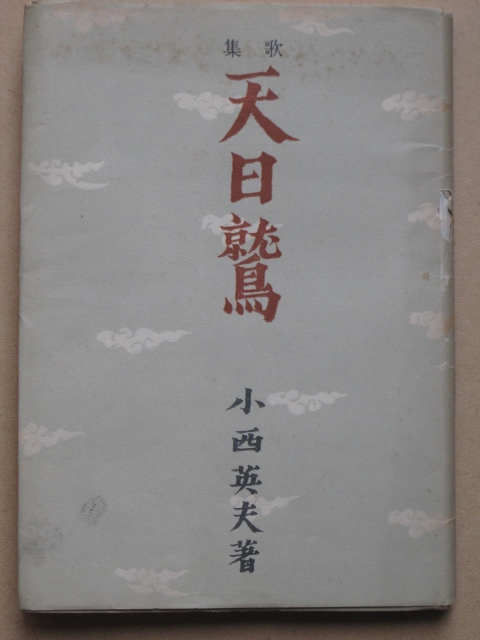 歌集
天日鷲
小西英夫著